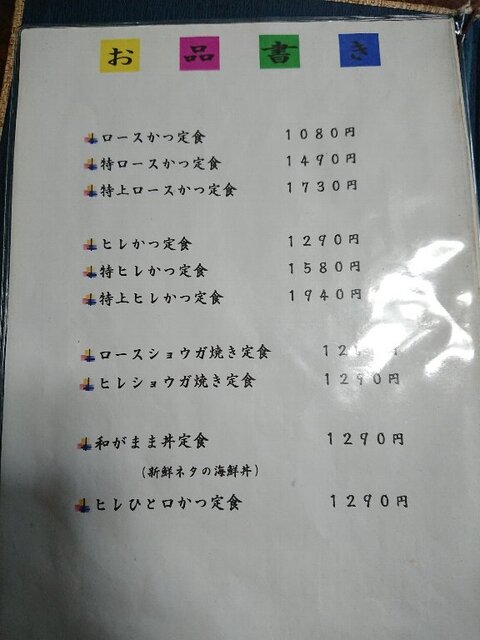 お品書き
ロースかつ定食 1080円
特ロースかつ定食 1490円
特上ロースかつ定食 1730円
ヒレかつ定食 1290円
特ヒレかつ定食 1580円
特上ヒレかつ定食 1940円
ロースショウガ焼き定食
ヒレショウガ焼き定食 1290円
和がまま丼定食 1290円
(新鮮ネタの海鮮丼)
ヒレひと口かつ定食 1290円